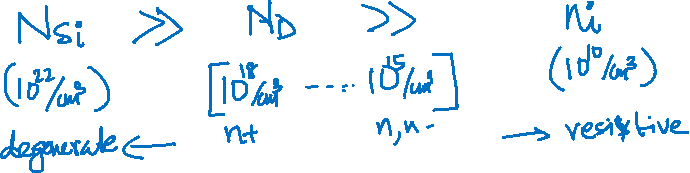 N_Si ≫ N_D ≫ n_i
(10^22/cm^3) [10^18/cm^3 ---- 10^15/cm^3] (10^10/cm^3)
degenerate ← n+ n, n- → resistive